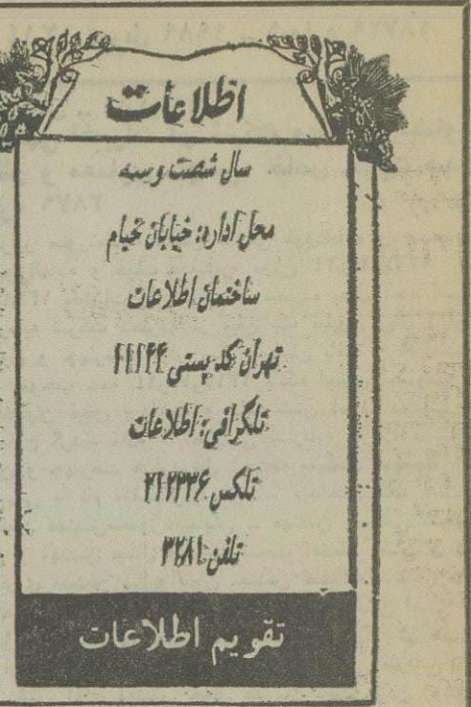 اطلاعات
سال شصت و سه
محل اداره: خیابان خیام
ساختمان اطلاعات
تهران کد پستی ۱۱۱۴۴
تلگرافی: اطلاعات
تلکس ۲۱۲۳۳۶
تلفن: ۳۲۸۱
تقویم اطلاعات